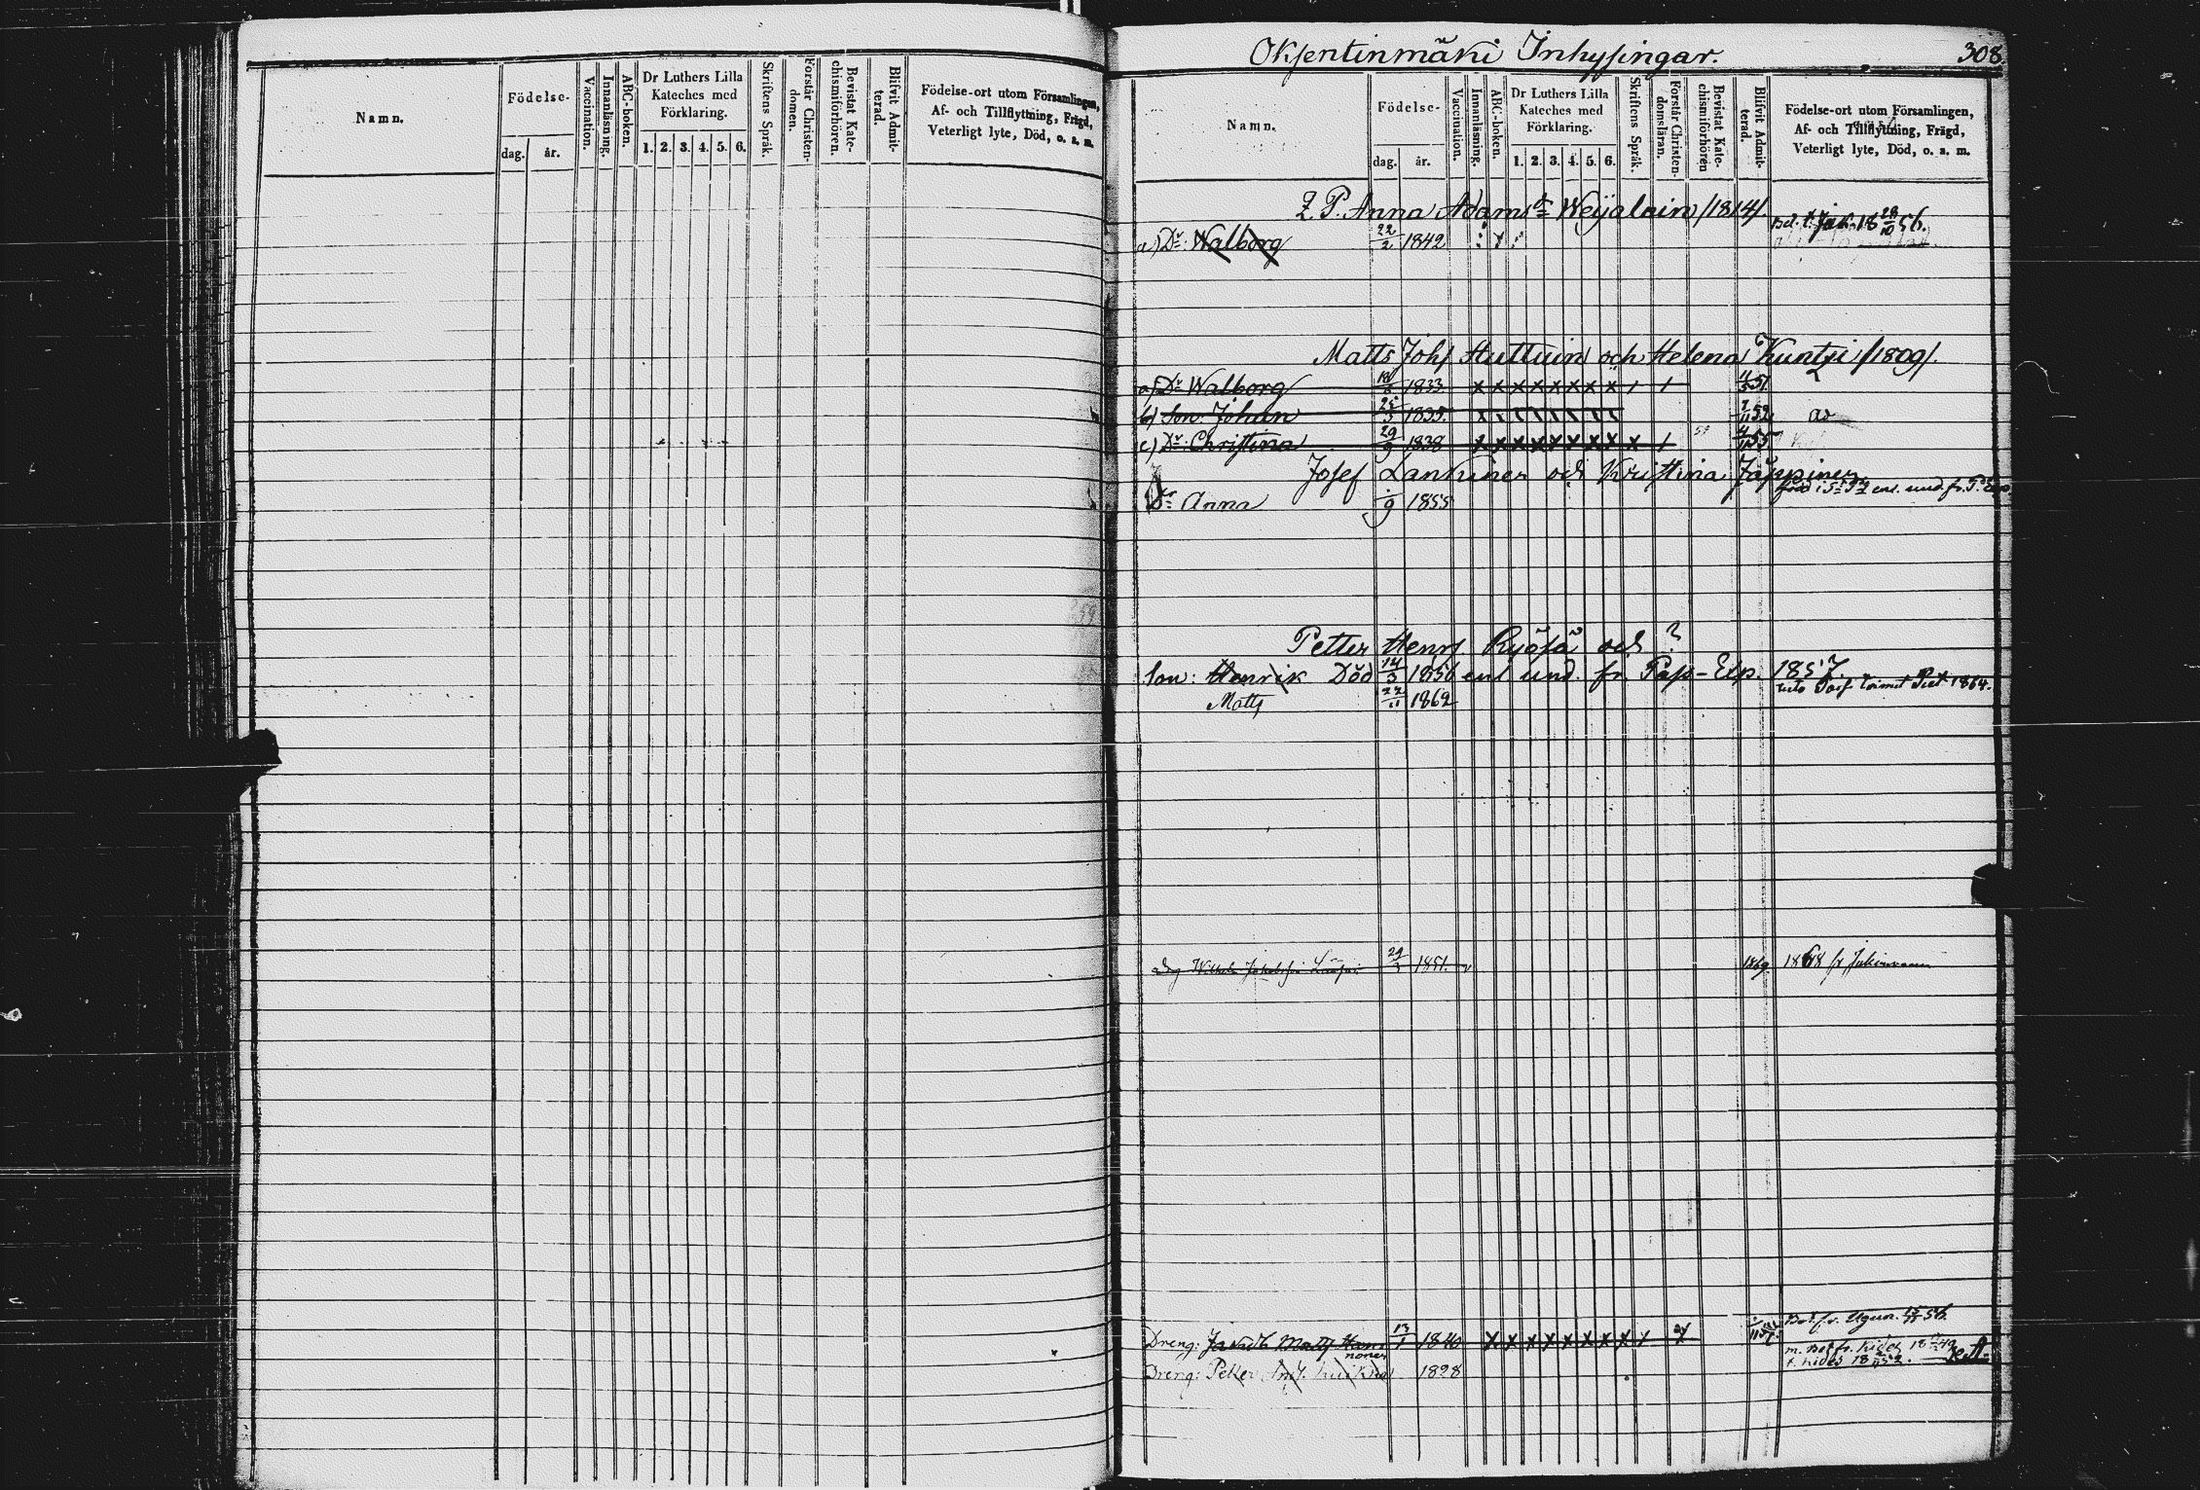 Namn.
Födelse-
dag.
år.
Vaccination.
Innanläsning.
ABC-boken.
Dr Luthers Lilla
Kateches med
Förklaring.
1. 2. 3. 4. 5. 6.
Skriftens Språk.
Förstår Christen-
domen.
Bevistat Kate-
chismiförhören.
Blifvit Admit-
terad.
Födelse-ort utom Församlingen,
Af- och Tillflyttning, Frägd,
Veterligt lyte, Död, o. a. m.
Oksentinmäki Inhysingar.
308.
Namn.
Födelse-
dag.
år.
Vaccination.
Innanläsning.
ABC-boken.
Dr Luthers Lilla
Kateches med
Förklaring.
1. 2. 3. 4. 5. 6.
Skriftens Språk.
Förstår Christen-
domsläran.
Bevistat Kate-
chismiförhören
Blifvit Admit-
terad.
Födelse-ort utom Församlingen,
Af- och Tillflyttning, Frägd,
Veterligt lyte, Död, o. a. m.
Anna Adamsdr Weijalain /1814/
a) Dr: Walborg 22/2 1842 18 28/10 56.
Matts Johs Huttuin och Helena Kuntsi /1809/.
a) Dr Walborg 1833 x x x x x x x x 51.
b) Son Johan 25/3 1835. 52
c) Dr: Christina 29/9 1838 x x x x x x x x x 55
Josef Lankinen och Kristina Jäppinen
Dr Anna 9 1855
Petter Henrs Ryösä och ?
Son: Henrik Död 14/3 1856 enl und. fr. Pass-Exp. 1857.
Matts 22/11 1862 1864.
1851. 1869 1868 fr
Dreng: Jakob Matts 13/1 1840 x x x x x x x x
nonen
Dreng: Peter 1828